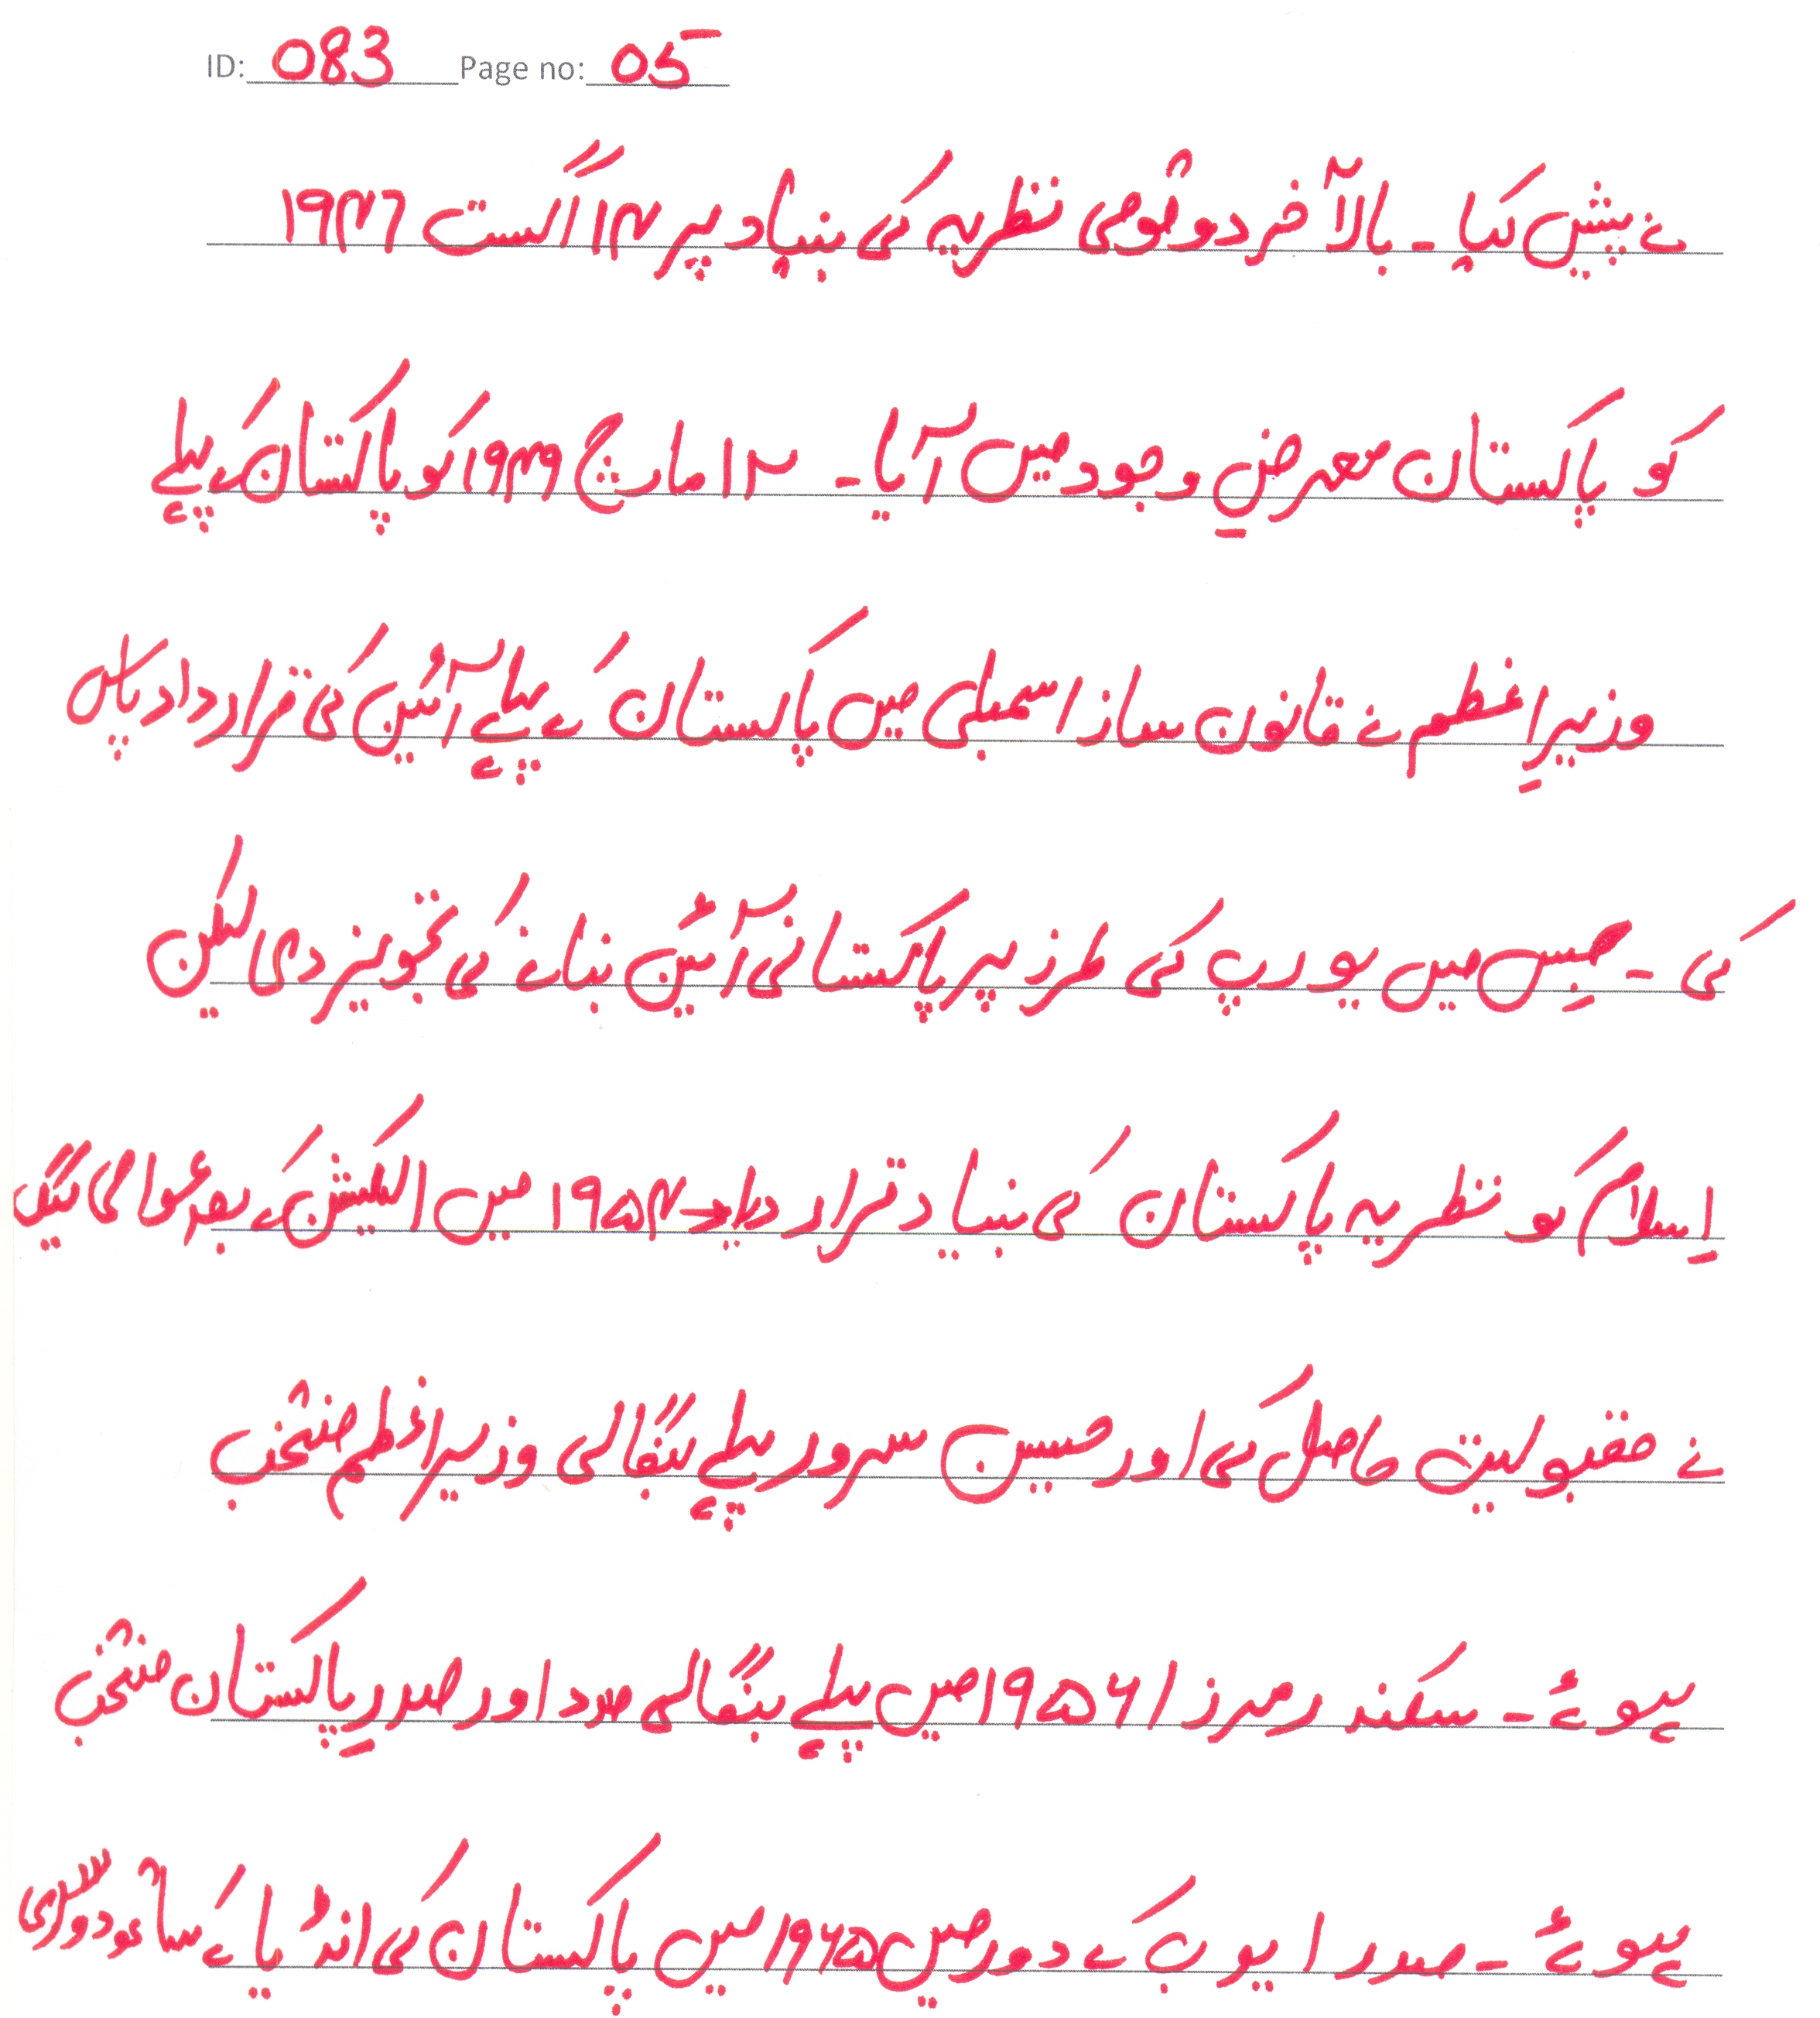 ID: 083 Page no: 05
نے پیش کیا۔ بالآخر دو قومی نظریہ کی بنیاد پر ۱۴ اگست ۱۹۴۷
کو پاکستان معرضِ وجود میں آیا۔ ۱۲ مارچ ۱۹۴۹ کو پاکستان کے پہلے
وزیرِ اعظم نے قانون ساز اسمبلی میں پاکستان کے پہلے آئین کی قرارداد پاس
کی۔ جِس میں یورپ کی طرز پر پاکستانی آئین بنانے کی تجویز دی لیکن
اِسلام کو نظریہ پاکستان کی بنیاد قرار دیا۔ ۱۹۵۴ میں الیکشن کے بعد عوامی لیگ
نے مقبولیت حاصل کی اور حسین سہرور پہلے بنگالی وزیر اعظم منتخب
ہوئے۔ سکندر مرزا ۱۹۵۶ میں پہلے بنگالی صدد اور صدرِ پاکستان منتخب
ہوئے۔ صدر ایوب کے دور میں ۱۹۶۵ میں پاکستان کی انڈیا کے ساتھ دوسری